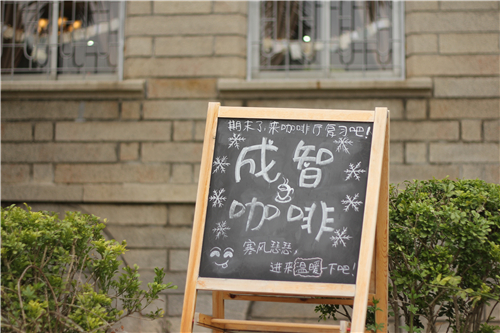 期末了,来咖啡厅复习吧!
成智
咖啡
寒风瑟瑟,
进来温暖一下吧!